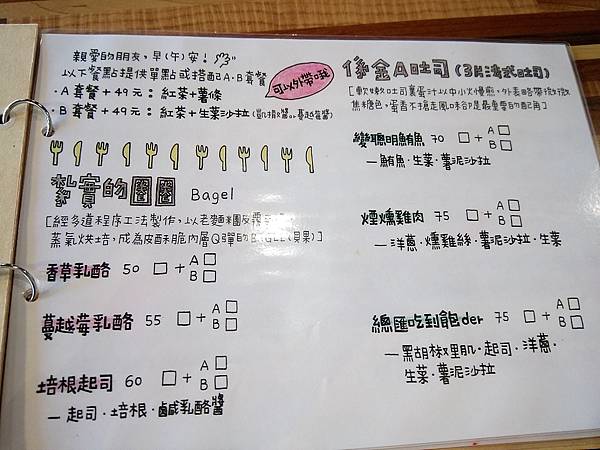 親愛的朋友，早(午)安！
以下餐點提供單點或搭配A.B套餐
·A 套餐＋49元：紅茶＋薯條
·B 套餐＋49元：紅茶＋生菜沙拉(凱撒醬or蔓越莓醬)
可以外帶哦
紮實的圈圈 Bagel
[經多道程序工法製作，以老麵糰反覆
蒸氣烘培，成為皮酥脆內層Q彈的 (貝果)]
香草乳酪 50 □＋A□ B□
蔓越莓乳酪 55 □＋A□ B□
培根起司 60 □＋A□ B□
—起司·培根·鹹乳酪醬
係金A吐司(3片法式吐司)
[軟嫩吐司裹蛋汁以中小火慢煎，外表略帶微微
焦糖色，蛋香不搶走風味卻是最重要的配角]
變聰明鮪魚 70 □＋A□ B□
—鮪魚·生菜·薯泥沙拉
煙燻雞肉 75 □＋A□ B□
—洋蔥·燻雞絲·薯泥沙拉·生菜
總匯吃到飽der 75 □＋A□ B□
—黑胡椒里肌·起司·洋蔥·
生菜·薯泥沙拉